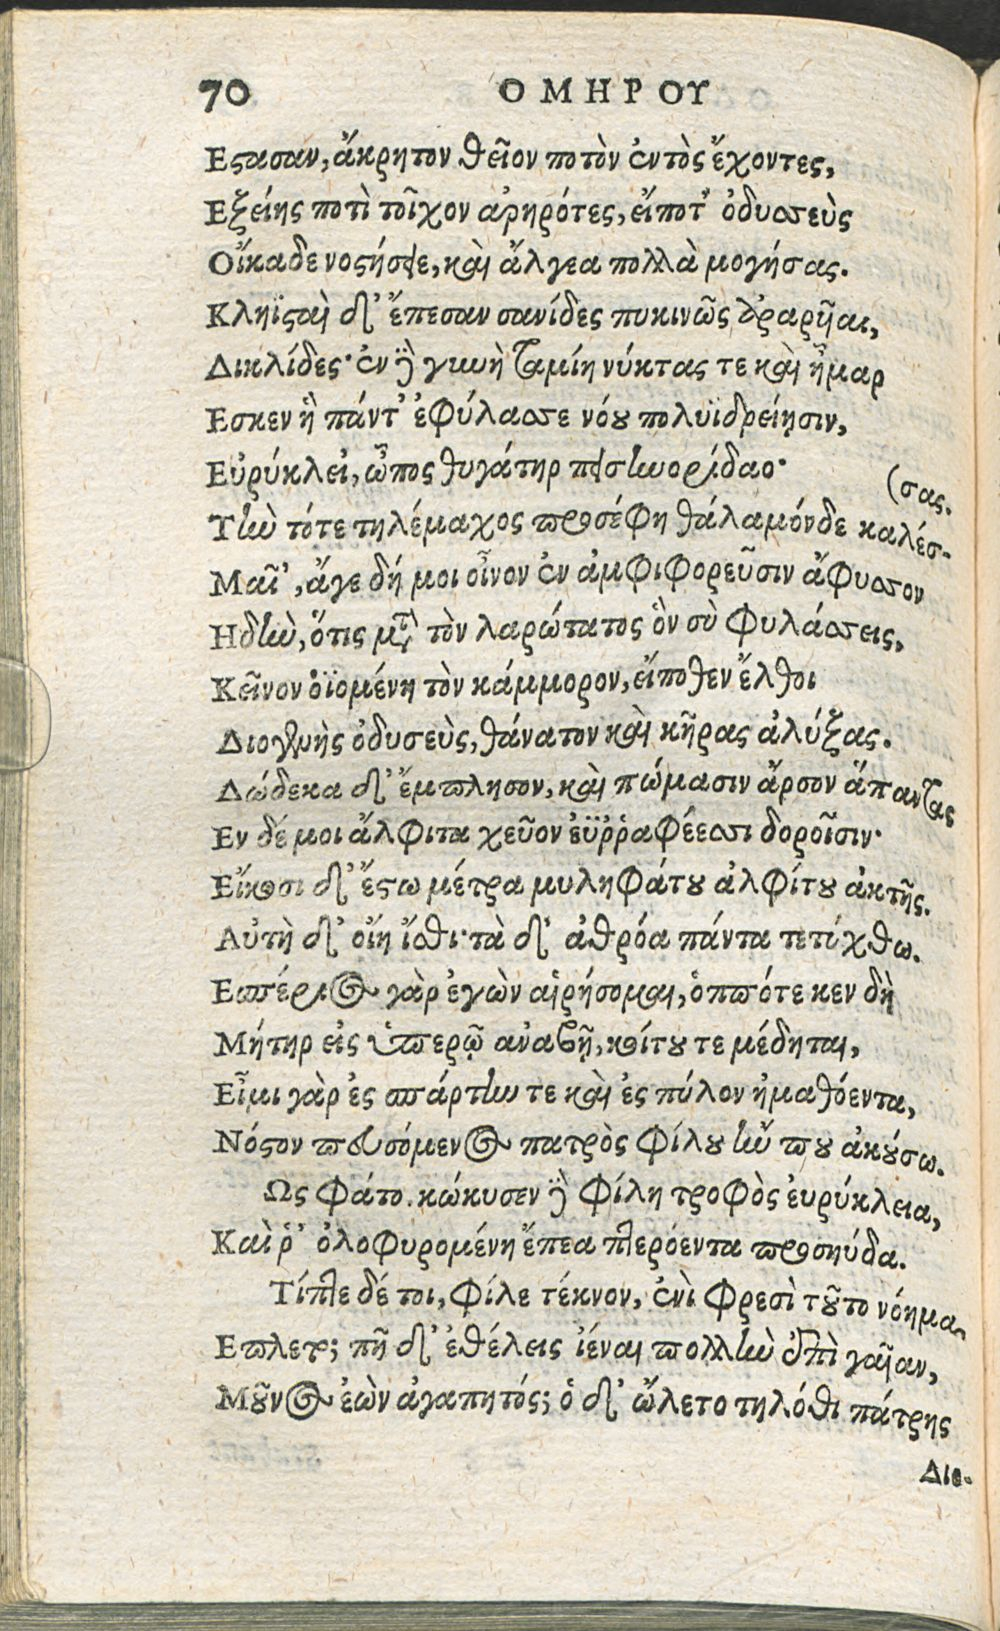 70 ΟΜΗΡΟΥ
Εστασαν, ἄκρητον θεῖον ποτὸν ἐντὸς ἔχοντες,
Εξείης ποτὶ τοῖχον ἀρηρότες, εἴποτ' ὀδυσσεὺς
Οἴκαδε νοστήσειε, καὶ ἄλγεα πολλὰ μογήσας.
Κληϊσταὶ δ' ἔπεσαν σανίδες πυκινῶς ἀραρῆαι,
Δικλίδες· ἐν δὲ γυνὴ ταμίη νύκτας τε καὶ ἦμαρ
Εσκεν ἣ πάντ' ἐφύλασσε νόου πολυϊδρείῃσιν,
Εὐρύκλει, ὦπος θυγάτηρ πεισηνορίδαο·
(σας.
Τὴν τότε τηλέμαχος προσέφη θάλαμόνδε καλέσ-
Μαῖ', ἄγε δή μοι οἶνον ἐν ἀμφιφορεῦσιν ἄφυσσον
Ηδὺν, ὅτις μετὰ τὸν λαρώτατος ὃν σὺ φυλάσσεις,
Κεῖνον ὀϊομένη τὸν κάμμορον, εἴποθεν ἔλθοι
Διογενὴς ὀδυσεὺς, θάνατον καὶ κῆρας ἀλύξας.
Δώδεκα δ' ἔμπλησον, καὶ πώμασιν ἄρσον ἅπαντας
Εν δέ μοι ἄλφιτα χεῦον ἐϋῤῥαφέεσσι δοροῖσιν·
Εἴκοσι δ' ἔστω μέτρα μυληφάτου ἀλφίτου ἀκτῆς.
Αὐτὴ δ' οἴη ἴσθι· τὰ δ' ἀθρόα πάντα τετύχθω.
Εσπέριος γὰρ ἐγὼν αἱρήσομαι, ὁππότε κεν δὴ
Μήτηρ εἰς ὑπερῷ ἀναβῇ, κοίτου τε μέδηται,
Εἶμι γὰρ ἐς σπάρτην τε καὶ ἐς πύλον ἠμαθόεντα,
Νόστον πευσόμενος πατρὸς φίλου ἤν που ἀκούσω.
Ως φάτο. κώκυσεν δὲ φίλη τροφὸς ἐυρύκλεια,
Καὶ ῥ' ὀλοφυρομένη ἔπεα πτερόεντα προσηύδα.
Τίπτε δέ τοι, φίλε τέκνον, ἐνὶ φρεσὶ τοῦτο νόημα
Επλετο; πῆ δ' ἐθέλεις ἰέναι πολλὴν ἐπὶ γαῖαν,
Μοῦνος ἐὼν ἀγαπητός; ὁ δ' ὤλετο τηλόθι πάτρης
Διο-